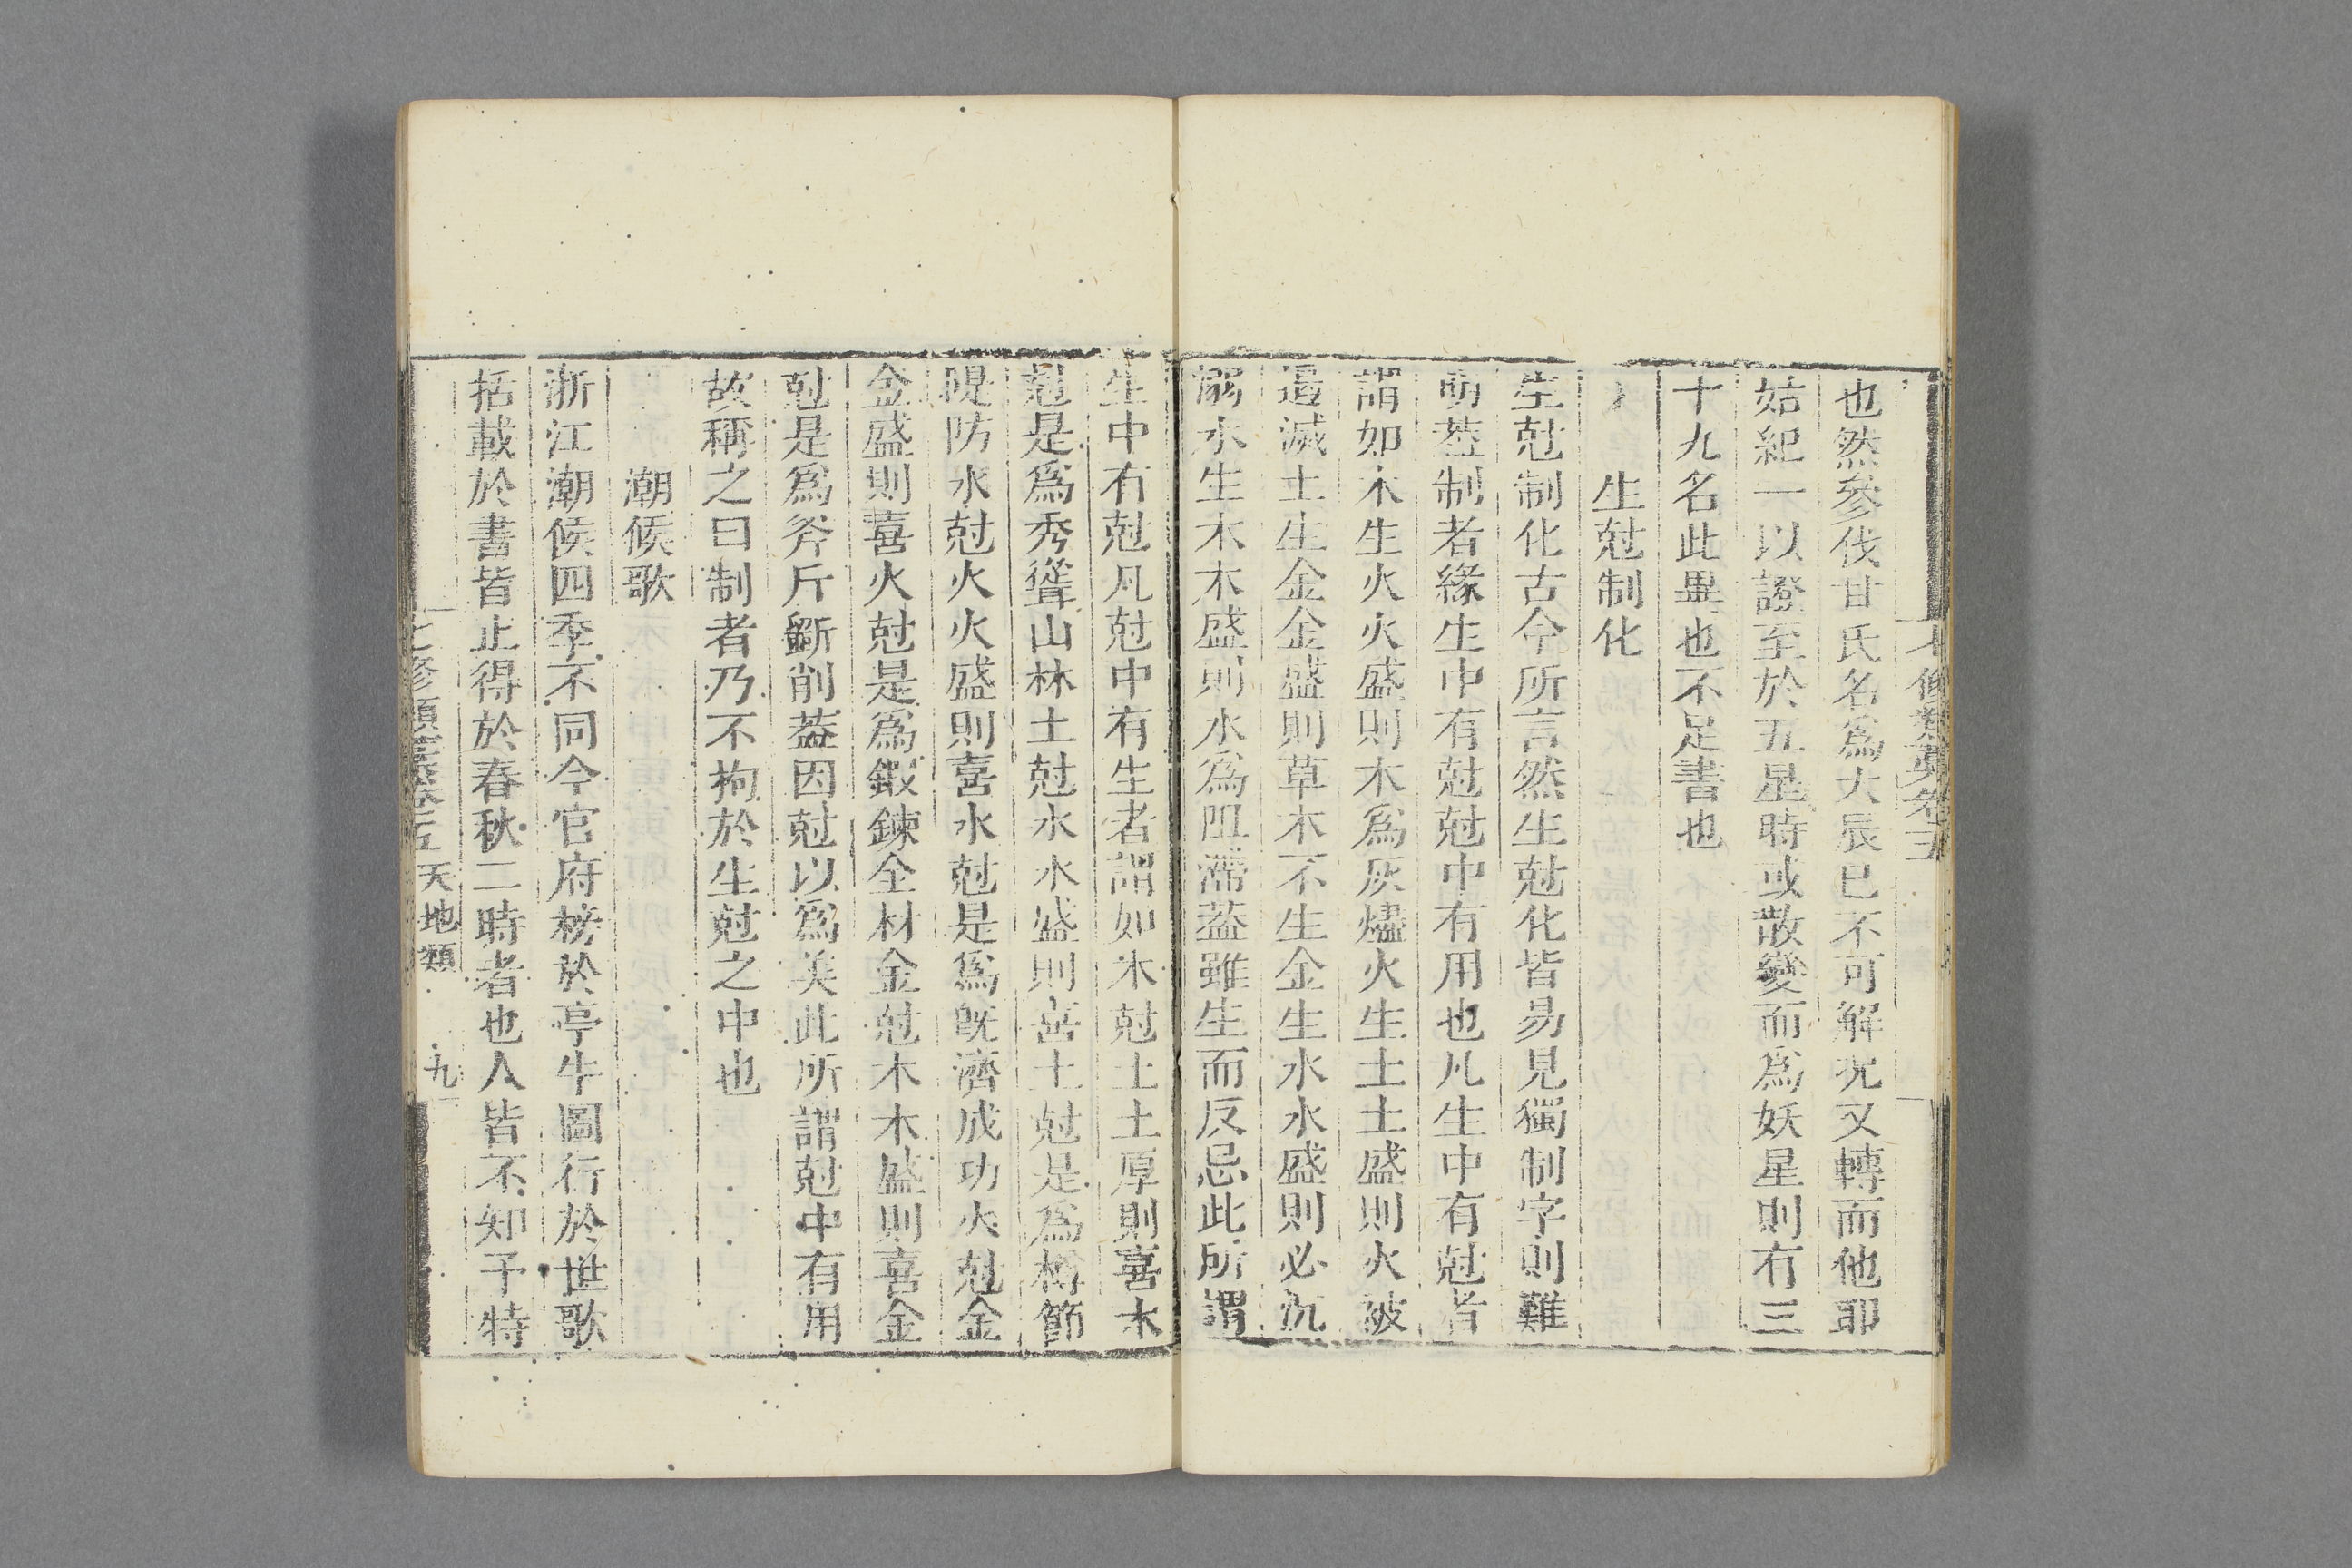 七修類藁卷五
也然參伐甘氏名爲大辰已不可解況又轉而他耶
姑紀一以證至於五星時或散變而爲妖星則有三
十九名此異也不足書也
生尅制化
生尅制化古今所言然生尅化皆易見獨制字則難
萌葢制者緣生中有尅尅中有用也凡生中有尅者
謂如木生火火盛則木爲灰燼火生土土盛則火被
遏滅土生金金盛則草木不生金生水水盛則必沉
溺水生木木盛則水爲阻滯葢雖生而反忌此所謂
生中有尅凡尅中有生者謂如木尅土土厚則喜木
尅是爲秀聳山林土尅水水盛則喜土尅是爲撙節
隄防水尅火火盛則喜水尅是爲旣濟成功火尅金
金盛則喜火尅是爲鍛鍊全材金尅木木盛則喜金
尅是爲斧斤斲削葢因尅以爲美此所謂尅中有用
故稱之曰制者乃不拘於生尅之中也
潮候歌
浙江潮候四季不同今官府榜於亭牛圖行於世歌
括載於書皆止得於春秋二時者也人皆不知予特
七修類藁卷五 天地類 九